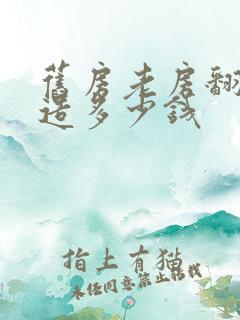 舊房老房翻
造多少錢
指上有猫
未经同意禁止转载